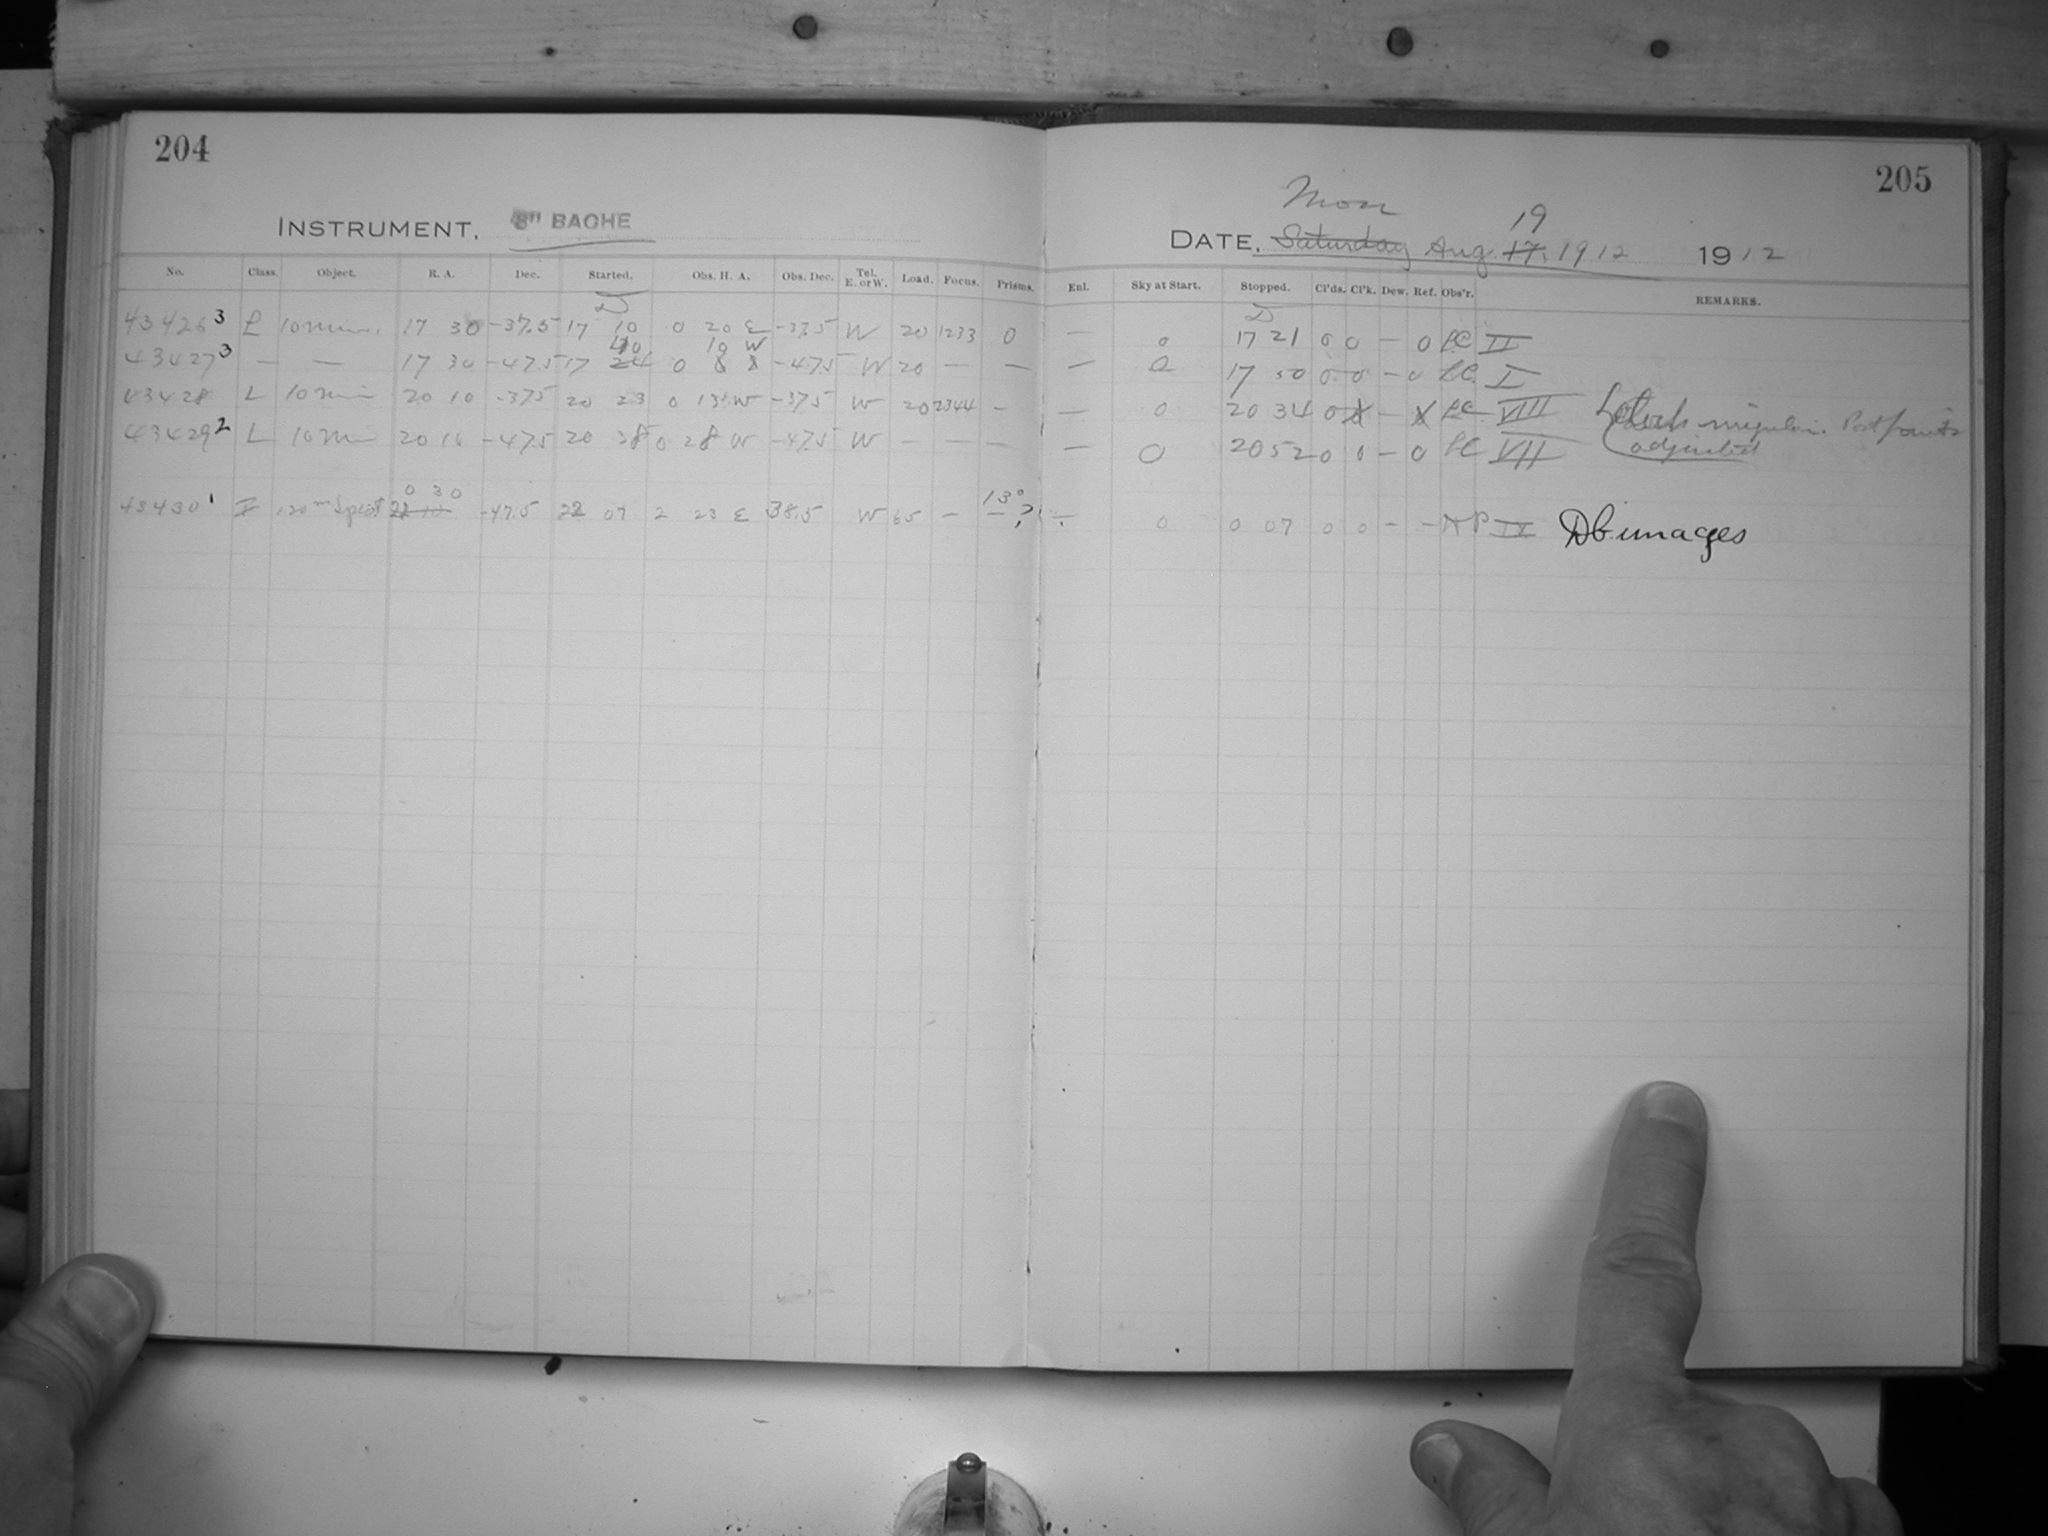 204
205
INSTRUMENT, 8" BACHE
Mon 19
DATE, Saturday Aug 17. 1912 1912
No. Class. Object. R. A. Dec. Started. Obs. H. A. Obs. Dec. Tel. E. or W. Load. Focus. Prisms. Enl. Sky at Start. Stopped. Cl'ds. Cl'k. Dew. Ref. Obs'r. REMARKS.
43426 3 L 10 min. 17 30 -37.5 17 10 0 20 E -37.5 W 20 1233 0 — 0 17 21 0 0 — 0 LC II
40 10 W
43427 3 — — 17 30 -47.5 17 24 0 -47.5 W 20 — — — 0 17 50 0 0 — 0 LC I
43428 L 10 min 20 10 -37.5 20 23 0 13 W -37.5 W 20 2344 — — 0 20 34 0 — LC VIII Clock
43429 2 L 10 min 20 10 -47.5 20 38 0 28 W -47.5 W — — — — 0 20 52 0 0 — 0 LC VII adjusted
0 30 13°
43430 1 120 m Spect 22 10 -47.5 22 07 2 23 E 38.5 W 65 — 0 0 07 0 0 - - IX Db. images